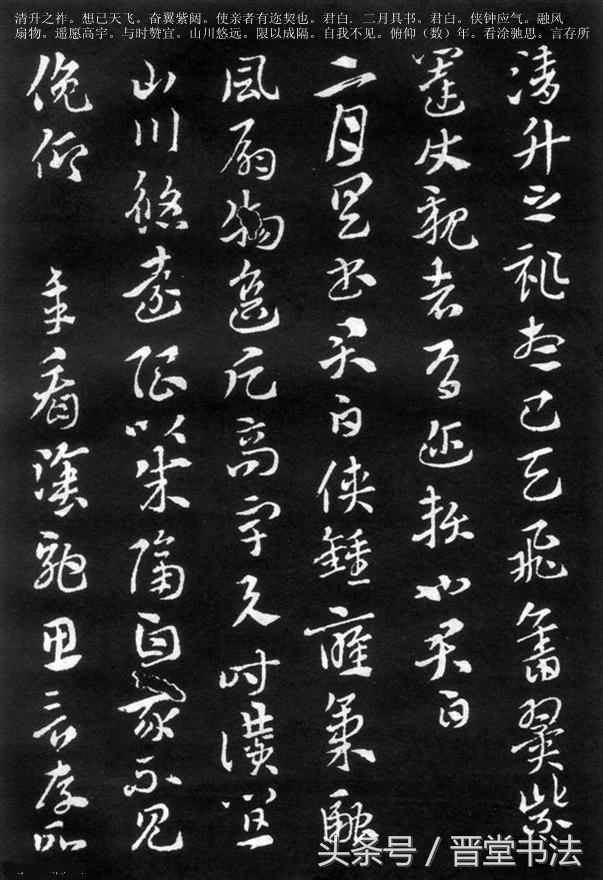 清升之祚。想已天飞。奋翼紫闼。使亲者有迩契也。君白. 二月具书。君白。侠钟应气。融风
扇物。遥愿高宇。与时赞宜。山川悠远。限以成隔。自我不见。俯仰（数）年。看涂驰思。言存所
清升之祚想已天飛奮翼紫
闥使親者有迩契也君白
二月具書君白侠鍾應氣融
風扇物遥愿高宇与時讚宜
山川悠遠限以成隔自我不見
俛仰 年看塗馳思言存所
头条号 / 晋堂书法